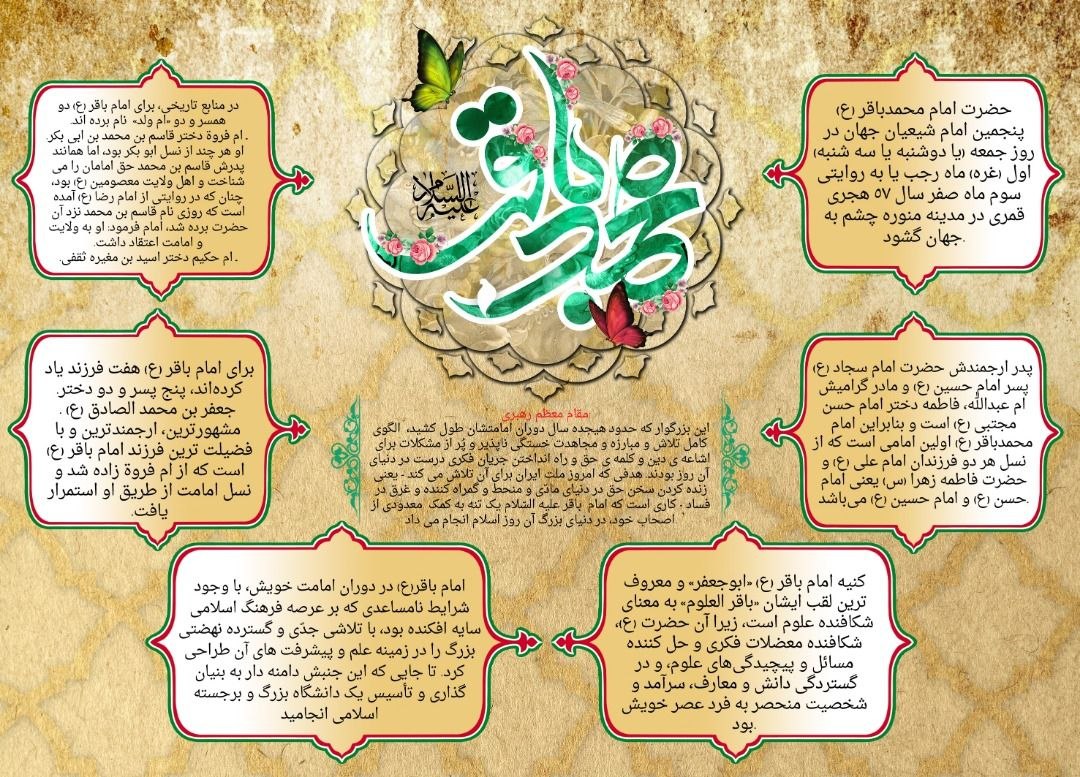 محمد باقر
علیه السلام
حضرت امام محمدباقر (ع)
پنجمین امام شیعیان جهان در
روز جمعه (یا دوشنبه یا سه شنبه)
اول (غره) ماه رجب یا به روایتی
سوم ماه صفر سال ۵۷ هجری
قمری در مدینه منوره چشم به
جهان گشود.
در منابع تاریخی، برای امام باقر (ع) دو
همسر و دو «ام ولد» نام برده اند.
ـ ام فروة دختر قاسم بن محمد بن ابی بکر.
او هر چند از نسل ابو بکر بود، اما همانند
پدرش قاسم بن محمد حق امامان را می
شناخت و اهل ولایت معصومین (ع) بود،
چنان که در روایتی از امام رضا (ع) آمده
است که روزی نام قاسم بن محمد نزد آن
حضرت برده شد، امام فرمود: او به ولایت
و امامت اعتقاد داشت.
ـ ام حکیم دختر اسید بن مغیره ثقفی.
پدر ارجمندش حضرت امام سجاد (ع)
پسر امام حسین (ع) و مادر گرامیش
ام عبدالله، فاطمه دختر امام حسن
مجتبی (ع) است و بنابراین امام
محمدباقر (ع) اولین امامی است که از
نسل هر دو فرزندان امام علی (ع) و
حضرت فاطمه زهرا (س) یعنی امام
حسن (ع) و امام حسین (ع) می‌باشد.
برای امام باقر (ع) هفت فرزند یاد
کرده‌اند، پنج پسر و دو دختر.
جعفر بن محمد الصادق (ع) .
مشهورترین، ارجمندترین و با
فضیلت ترین فرزند امام باقر (ع)
است که از ام فروة زاده شد و
نسل امامت از طریق او استمرار
یافت.
مقام معظم رهبری:
این بزرگوار که حدود هیجده سال دوران امامتشان طول کشید، الگوی
کامل تلاش و مبارزه و مجاهدت خستگی ناپذیر و پُر از مشکلات برای
اشاعه ی دین و کلمه ی حق و راه انداختن جریان فکری درست در دنیای
آن روز بودند. هدفی که امروز ملت ایران برای آن تلاش می کند - یعنی
زنده کردن سخن حق در دنیای مادّی و منحط و گمراه کننده و غرق در
فساد - کاری است که امام باقر علیه السّلام یک تنه به کمک معدودی از
اصحاب خود، در دنیای بزرگ آن روز اسلام انجام می داد
کنیه امام باقر (ع) «ابوجعفر» و معروف
ترین لقب ایشان «باقر العلوم» به معنای
شکافنده علوم است، زیرا آن حضرت (ع)،
شکافنده معضلات فکری و حل کننده
مسائل و پیچیدگی‌های علوم، و در
گستردگی دانش و معارف، سرآمد و
شخصیت منحصر به فرد عصر خویش
بود.
امام باقر(ع) در دوران امامت خویش، با وجود
شرایط نامساعدی که بر عرصه فرهنگ اسلامی
سایه افکنده بود، با تلاشی جدّی و گسترده نهضتی
بزرگ را در زمینه علم و پیشرفت های آن طراحی
کرد. تا جایی که این جنبش دامنه دار به بنیان
گذاری و تأسیس یک دانشگاه بزرگ و برجسته
اسلامی انجامید